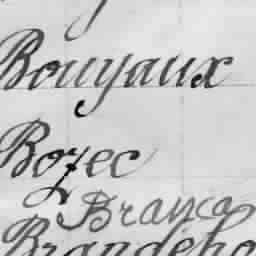 Bouyaux
Bozec
Branca
Brandeho